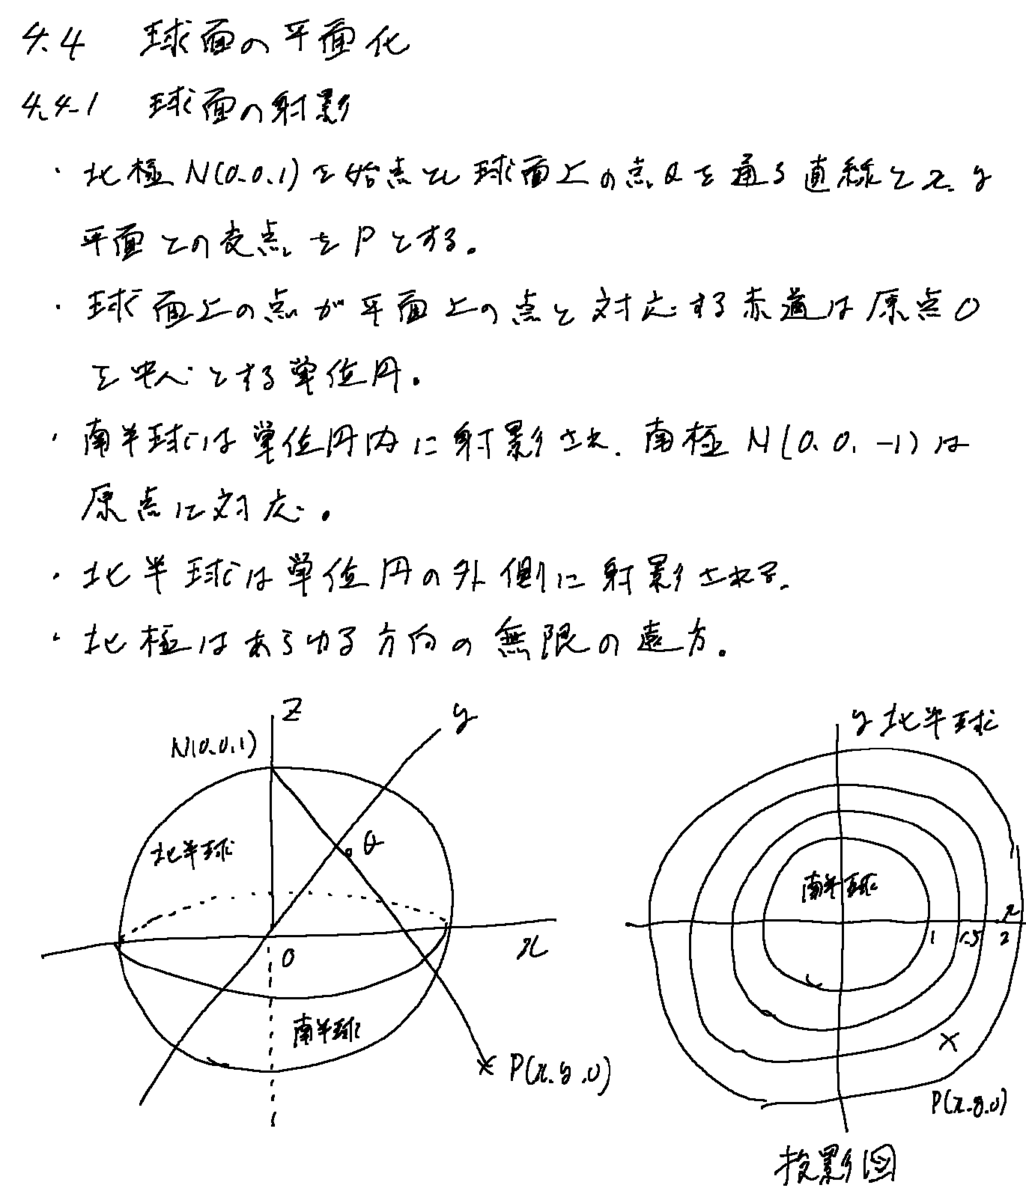 4.4 球面の平面化
4.4-1 球面の射影
・北極N(0.0.1)を始点とし球面上の点Qを通る直線とx.y
平面との交点をPとする。
・球面上の点が平面上の点と対応する赤道は原点O
を中心とする単位円。
・南半球は単位円内に射影され.南極N(0.0.-1)は
原点に対応。
・北半球は単位円の外側に射影される.
・北極はあらゆる方向の無限の遠方。
Z
y
N(0.0.1)
北半球
Q
O
x
南半球
P(x.y.0)
y 北半球
南半球
1 1.5 2
x
P(x.y.0)
投影図